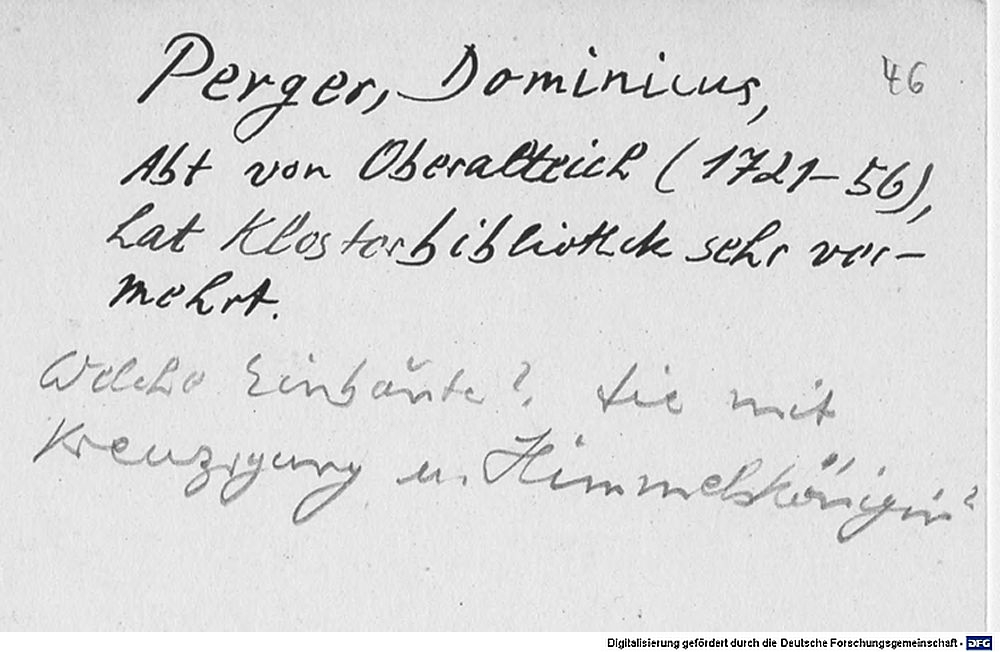 46
Perger, Dominicus,
Abt von Oberalteich (1721-56),
hat Klosterbibliothek sehr ver-
mehrt.
Welche Einbände?, die mit
Kreuzigung u. Himmelskönigin?
Digitalisierung gefördert durch die Deutsche Forschungsgemeinschaft - DFG